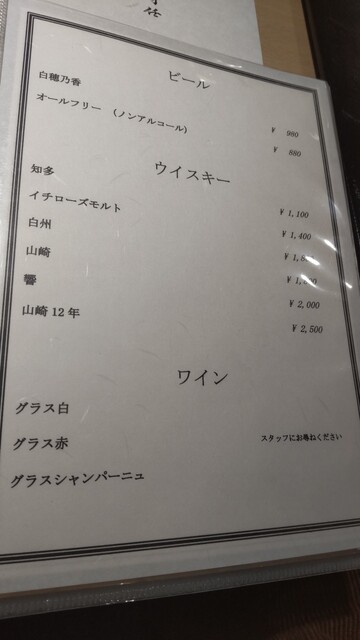 ビール
白穂乃香 ¥ 980
オールフリー (ノンアルコール) ¥ 880
ウイスキー
知多 ¥ 1,100
イチローズモルト ¥ 1,400
白州
山崎
響 ¥ 2,000
山崎12年 ¥ 2,500
ワイン
グラス白
グラス赤 スタッフにお尋ねください
グラスシャンパーニュ